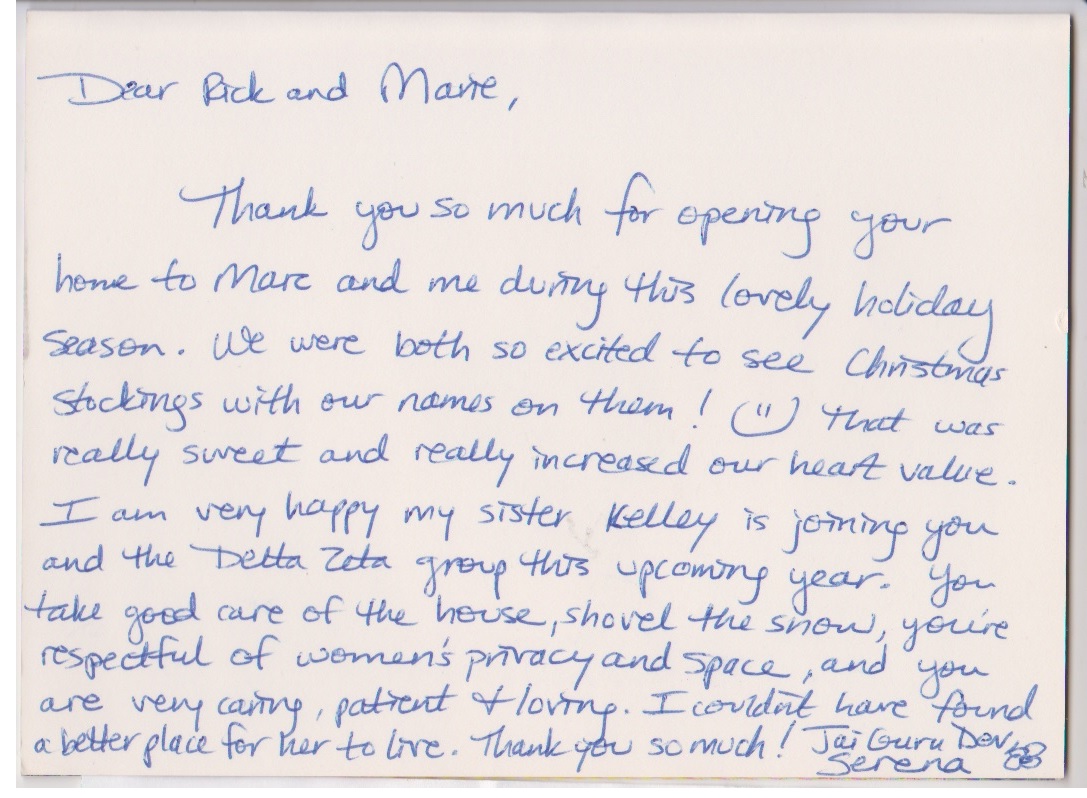 Dear Rick and Marie,
Thank you so much for opening your
home to Marc and me during this lovely holiday
season. We were both so excited to see Christmas
stockings with our names on them! That was
really sweet and really increased our heart value.
I am very happy my sister Kelley is joining you
and the Delta Zeta group this upcoming year. You
take good care of the house, shovel the snow, you're
respectful of women's privacy and space, and you
are very caring, patient & loving. I couldn't have found
a better place for her to live. Thank you so much! Jai Guru Dev,
Serena